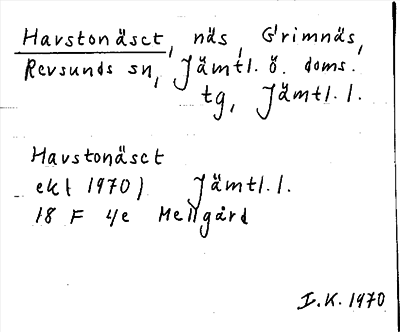 Havstonäset, näs, Grimnäs,
Revsunds sn, Jämtl. ö. doms.
tg, Jämtl. l.
Havstonäset
ekt 1970) Jämtl. l.
18 F 4e Mellgård
I.K. 1970